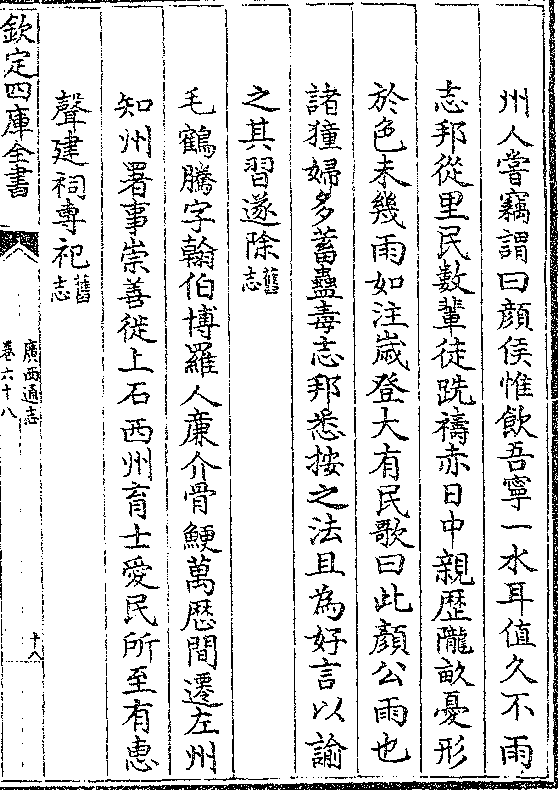 州人嘗竊謂曰顔侯惟飲吾寧一水耳值久不雨
志邦從里民數輩徒跣禱赤日中親歴隴畝憂形
於色未幾雨如注嵗登大有民歌曰此顔公雨也
諸獞婦多蓄蠱毒志邦悉按之法且為好言以諭
之其習遂除舊志
毛鶴騰字翰伯博羅人廉介骨鯁萬厯間遷左州
知州署事崇善徙上石西州育士愛民所至有惠
聲建祠専祀舊志
欽定四庫全書
廣西通志
卷六十八
十八